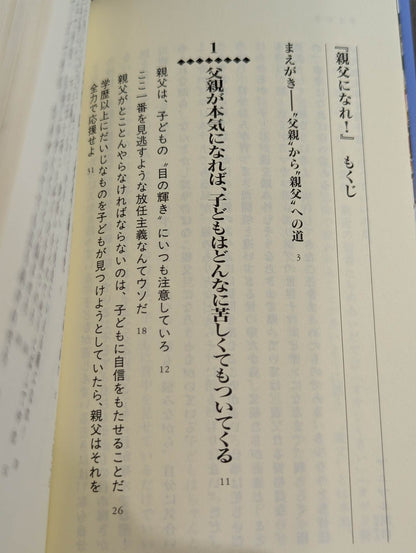 『親父になれ！』もくじ
まえがき――〝父親〟から〝親父〟への道 3
1
父親が本気になれば、子どもはどんなに苦しくてもついてくる 11
親父は、子どもの〝目の輝き〟にいつも注意していろ 12
ここ一番を見逃すような放任主義なんてウソだ 18
親父がとことんやらなければならないのは、子どもに自信をもたせることだ 26
学歴以上にだいじなものを子どもが見つけようとしていたら、親父はそれを
全力で応援せよ 31